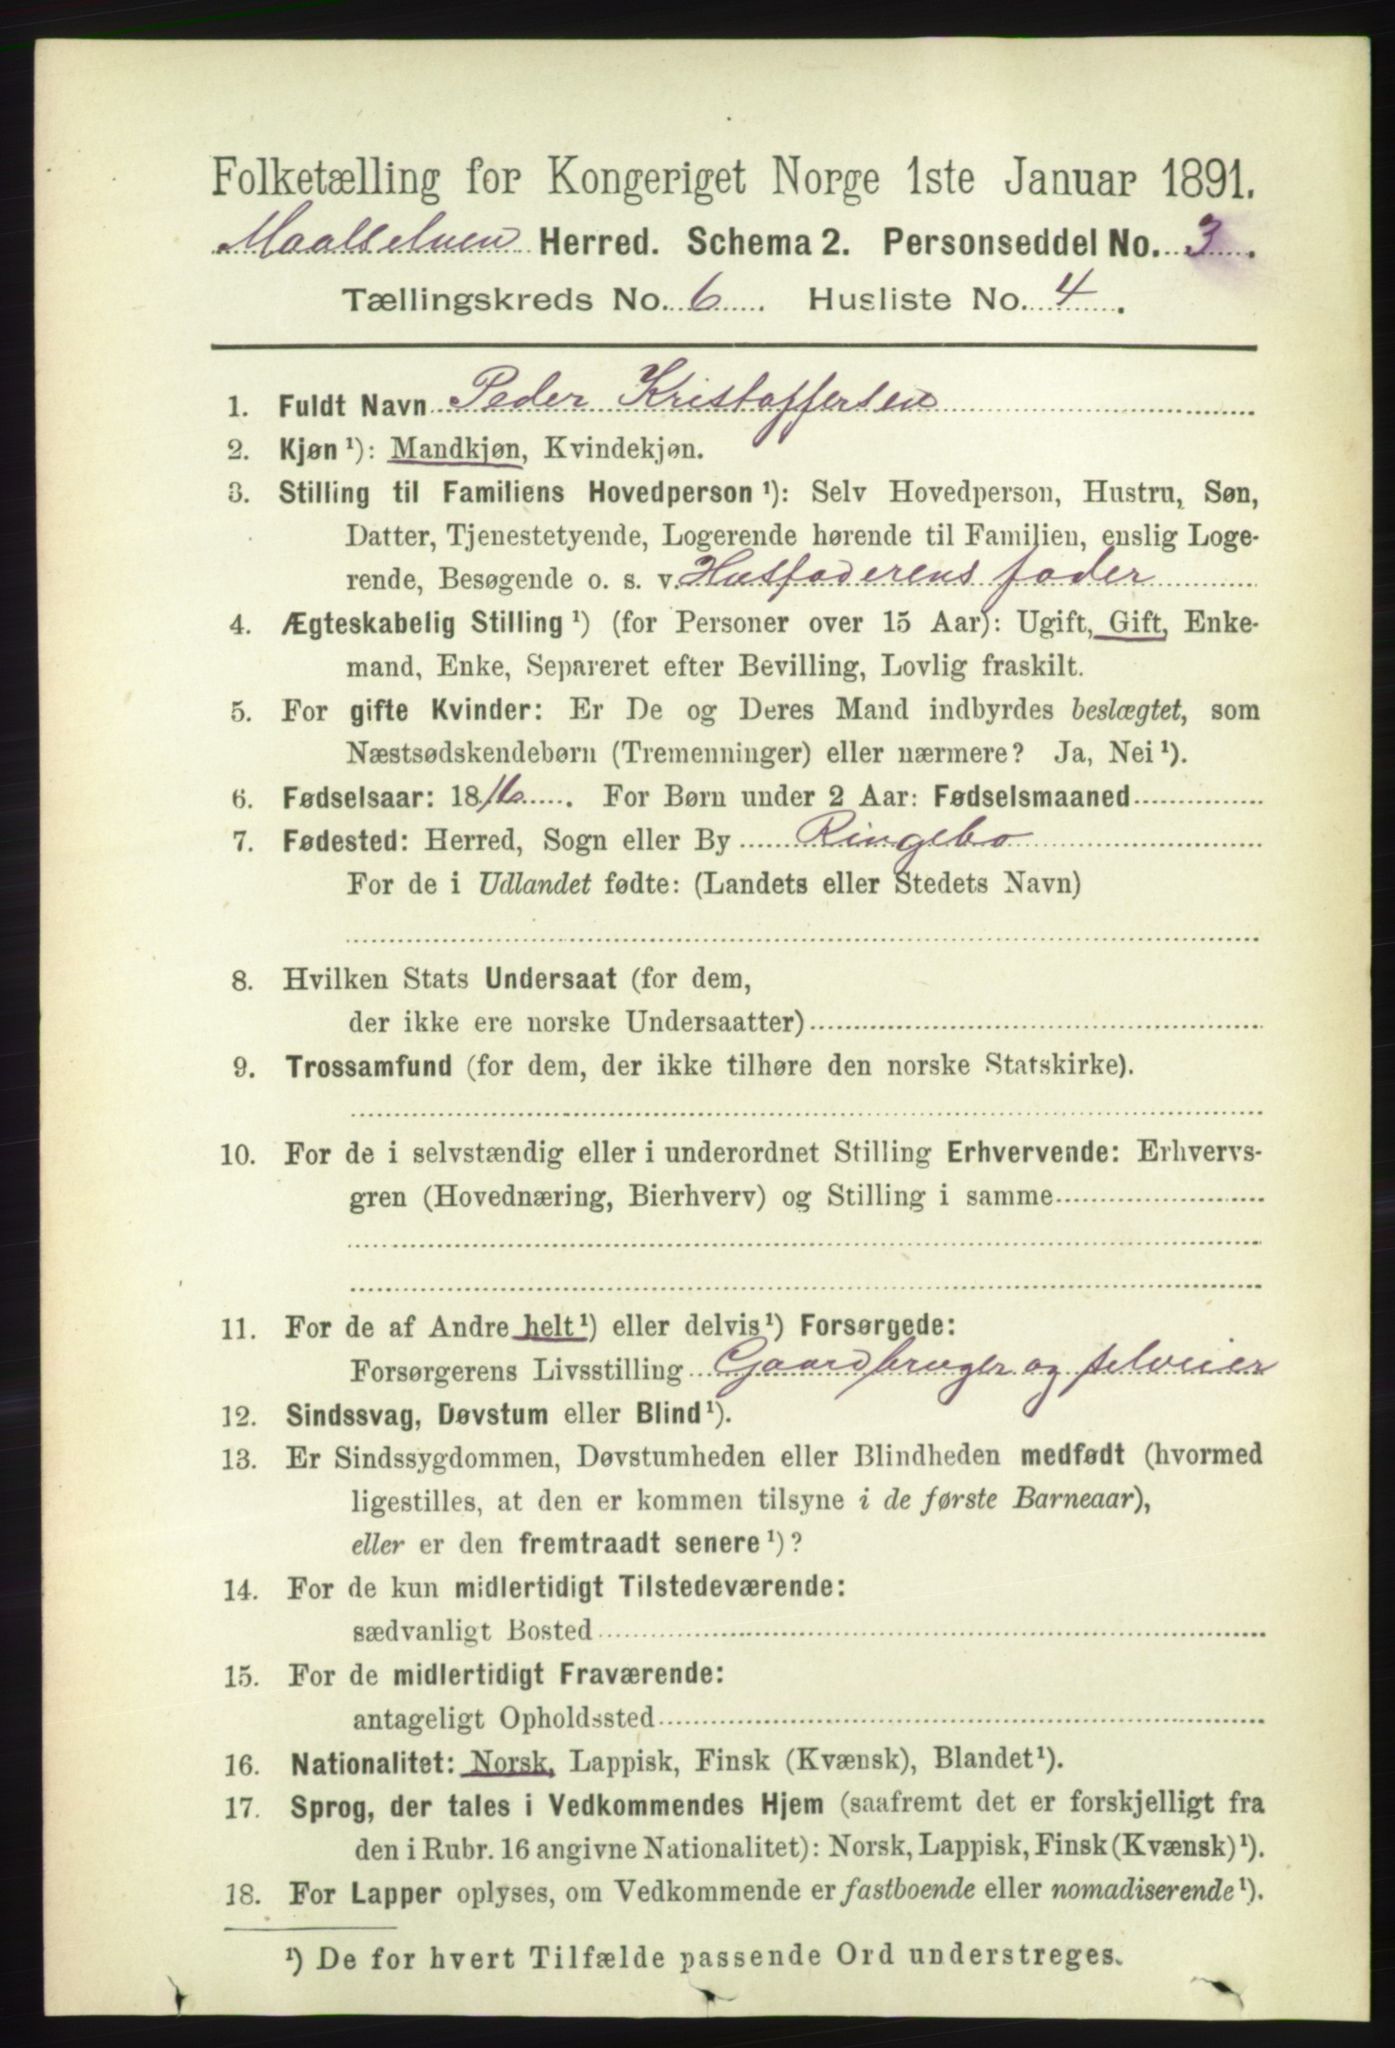 Folketælling for Kongeriget Norge 1ste Januar 1891.
Maalselven Herred. Schema 2. Personseddel No. 3.
Tællingskreds No. 6. Husliste No. 4.
1. Fuldt Navn Peder Kristoffersen
2. Kjøn ¹): Mandkjøn, Kvindekjøn.
3. Stilling til Familiens Hovedperson ¹): Selv Hovedperson, Hustru, Søn,
Datter, Tjenestetyende, Logerende hørende til Familien, enslig Loge-
rende, Besøgende o. s. v. Husfaderens fader
4. Ægteskabelig Stilling ¹) (for Personer over 15 Aar): Ugift, Gift, Enke-
mand, Enke, Separeret efter Bevilling, Lovlig fraskilt.
5. For gifte Kvinder: Er De og Deres Mand indbyrdes beslægtet, som
Næstsødskendebørn (Tremenninger) eller nærmere? Ja, Nei ¹).
6. Fødselsaar: 1816. For Børn under 2 Aar: Fødselsmaaned
7. Fødested: Herred, Sogn eller By Ringebo
For de i Udlandet fødte: (Landets eller Stedets Navn)
8. Hvilken Stats Undersaat (for dem,
der ikke ere norske Undersaatter)
9. Trossamfund (for dem, der ikke tilhøre den norske Statskirke).
10. For de i selvstændig eller i underordnet Stilling Erhvervende: Erhvervs-
gren (Hovednæring, Bierhverv) og Stilling i samme
11. For de af Andre helt ¹) eller delvis ¹) Forsørgede:
Forsørgerens Livsstilling Gaardbruger og selveier
12. Sindssvag, Døvstum eller Blind ¹).
13. Er Sindssygdommen, Døvstumheden eller Blindheden medfødt (hvormed
ligestilles, at den er kommen tilsyne i de første Barneaar),
eller er den fremtraadt senere ¹)?
14. For de kun midlertidigt Tilstedeværende:
sædvanligt Bosted
15. For de midlertidigt Fraværende:
antageligt Opholdssted
16. Nationalitet: Norsk, Lappisk, Finsk (Kvænsk), Blandet ¹).
17. Sprog, der tales i Vedkommendes Hjem (saafremt det er forskjelligt fra
den i Rubr. 16 angivne Nationalitet): Norsk, Lappisk, Finsk (Kvænsk) ¹).
18. For Lapper oplyses, om Vedkommende er fastboende eller nomadiserende ¹).
¹) De for hvert Tilfælde passende Ord understreges.